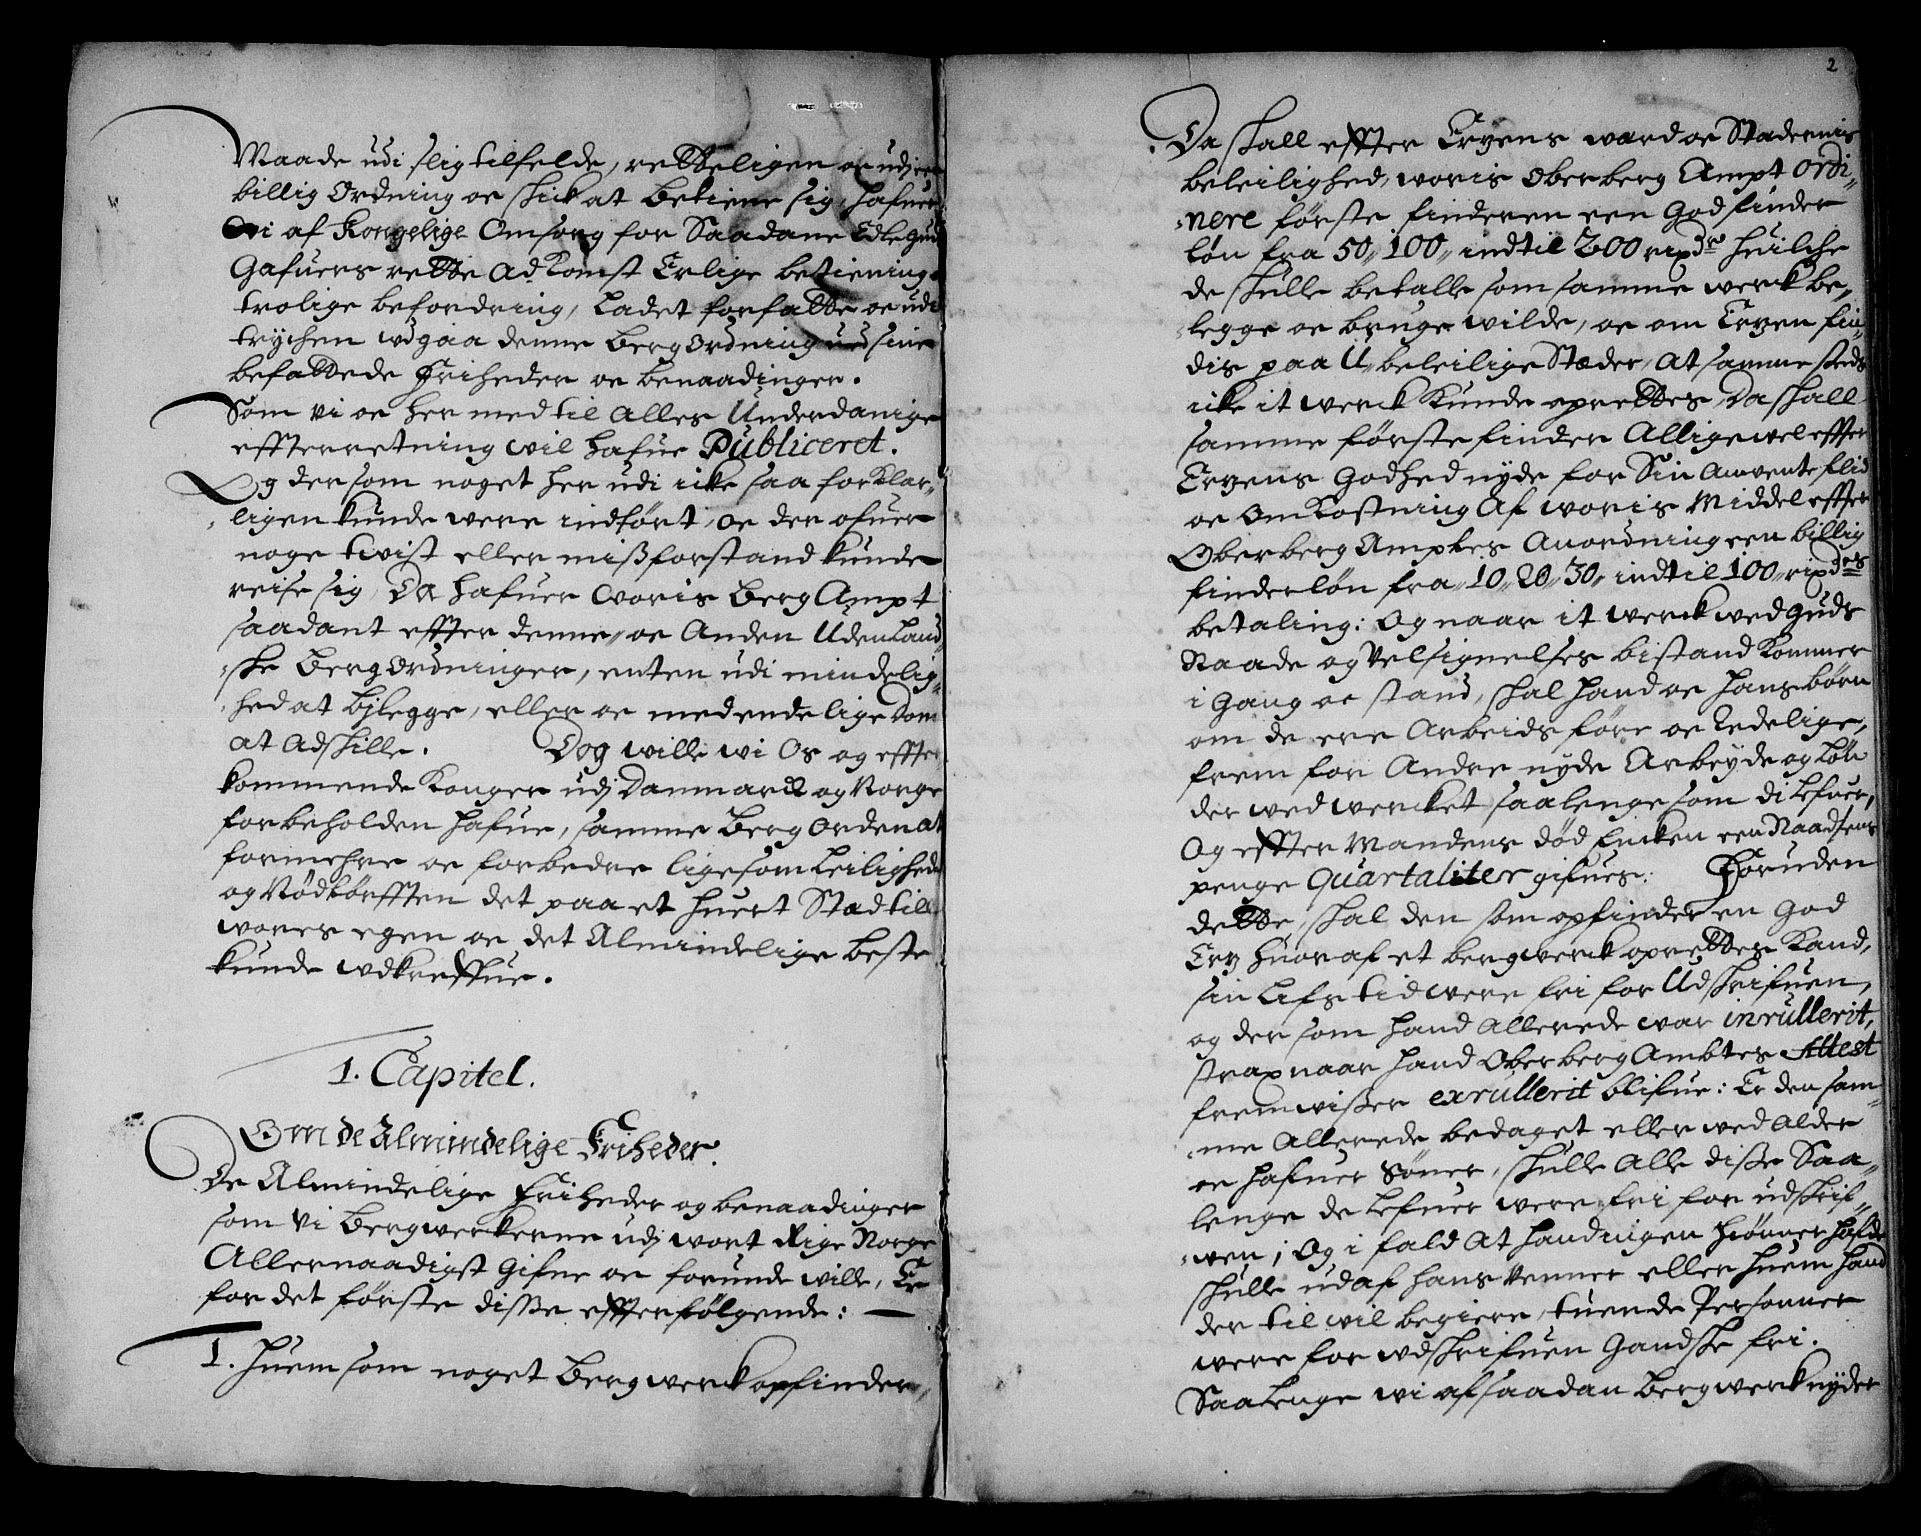 Maade udi slig tilfelde, retteligen oc udj een
billig Ordning oc skik at betiene sig, hafuer
Wi af Kongelige Omsorg for Saadane Edle Gud
Gafuers rette Adkomst Erlige betiening
trolige befordring, Ladet forfatte oc udi
trychen udgaa denne Berg Ordning ud sine
befattede Friheder oc benaadinger.
Som vi oc her med til Alles Underdanige
effterretning wil hafue Publiceret.
Og der som noget her udi icke saa for klar-
ligen kunde were indført, oc der ofuer
noge twist eller misforstand kunde
reise sig, Da hafuer Woris Berg Ampt
saadant effter denne, oc Anden Uden Land-
ske Berg Ordninger, enten udi mindelig-
hed at bjlegge, eller oc med endelige Dom
at Adskille. Dog wille wi Os og effter
kommende Konger udj Danmarck og Norge
forbeholden hafue, samme Berg Orden at
formehre oc forbedre ligesom Leilighed
og Nødtørfften det paa et huert Stæd till
wores egen oc det Almindelige beste
kunde udkreffue.
1. Capitel.
Om de Almindelige Friheder.
De Almindelige Friheder og benaadinger
som Vi Bergwerkerne udj wort Rige Norge
Allernaadigst gifue oc forunde wille, Er
for det første disse effterfølgende: —
1. Huem som noget Bergwerk opfinder,
2
Da skall effter Ertzens werd oc Stædernis
beleilighed, woris Oberberg Ampt Ordi-
nere første finderen een God finder
løn fra 50, 100, indtil 200 rixdr huilche
de skulle betalle som samme werck be-
legge oc bruge wilde, oc om Ertzen fin-
dis paa U-beleilige Stæder, At samme steds
icke it werck kunde oprettes, Da skall
samme første finder Alligewel effter
Ertzens Godhed nyde for Sin Anvente flid
oc Omkostning Af woris Middel effter
Oberberg Amptes Anordning een billig
finderløn fra 10, 20, 30, indtil 100 rixdrs
betaling: Og naar it werck wed Guds
Naade og Velsignelses bistand kommer
i Gang oc stand, skal hand oc hans børn
om de ere Arbeids føre oc Redelige,
frem for Andre nyde Arbeyde og Løn
der wed wercket saalenge som di Lefuer,
Og effter Mandens død Encken een Naadsens
penge Quartaliter gifues: Foruden
dette, skal den som opfinder en God
Ertz huoraf et bergwerck oprettes kand,
sin Lifs tid were fri for Udskrifuen,
og der som hand Allerede war inrullerit,
strax naar hand Oberberg Ambtes Attest
fremwiser exrullerit blifue: Er den sam-
me Allerede bedaget eller wed Alder
oc hafuer Søner, skulle Alle disse Saa-
lenge de Lefuer were fri for udskrif-
wen; Og i fald At hand ingen Sønner hafde
skulle udaf hans Venner eller huem hand
der til wil begiere, tuende Personner
were for udskrifuen Gandske fri.
Saa Lenge wi af saadan Bergwerk nyder